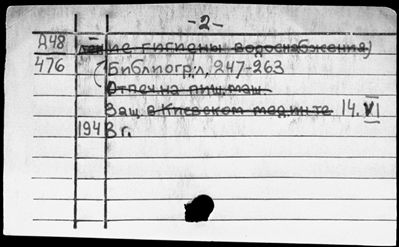 -2-
Д48 ление гигиены водоснабжения)
476 (Библиогр:л, 247-263
Отпеч.на пиш.маш.
Защ в Киевском мединте 14.VI
1948 г.